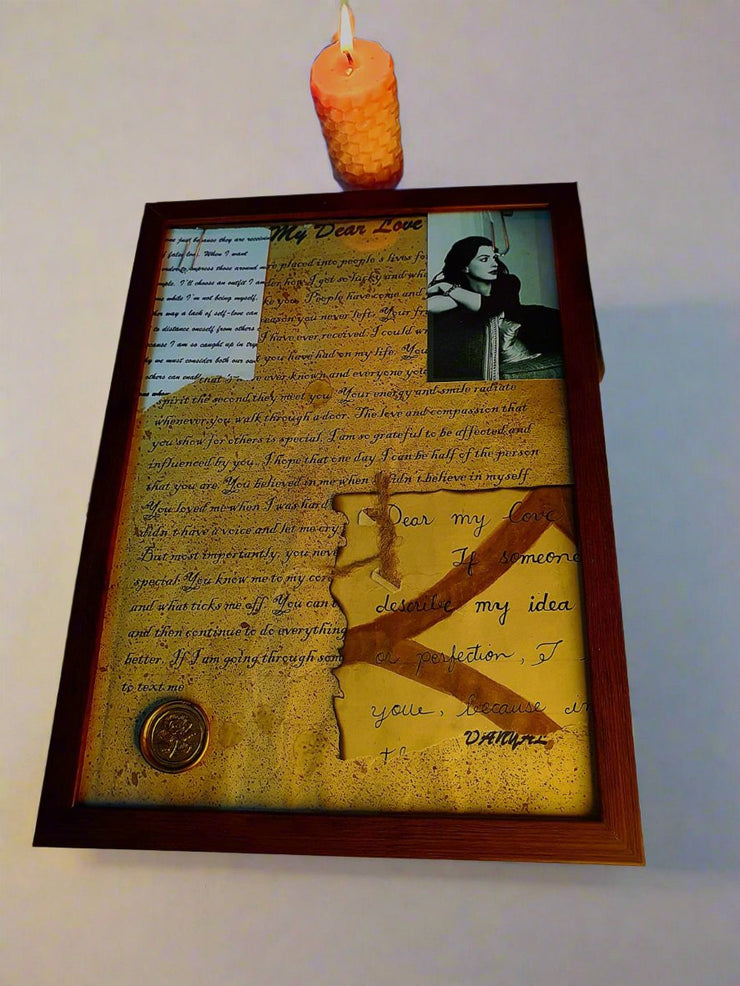 My Dear Love
me just because they are receiving
false love. When I want
impress those around
I'll choose an outfit I am
while I'm not being myself.
way a lack of self-love can
to distance oneself from others
cause I am so caught up in
we must consider both our
others can
placed into people's lives for
how I got so lucky and
you. People have come and
reason you never left. Your
I have ever received. I could
you have had on my life. You
that ever known and everyone
spirit the second they meet you. Your energy and smile radiate
whenever you walk through a door. The love and compassion that
you show for others is special. I am so grateful to be affected and
influenced by you. I hope that one day I can be half of the person
that you are. You believed in me when I didn't believe in myself.
You loved me when I was hard
didn't have a voice and let me cry
But most importantly, you
special. You know me to my core
and what ticks me off. You can
and then continue to do everything
better. If I am going through
to text me
Dear my love
If someone
describe my idea
perfection, I
youe, because
DANYAL